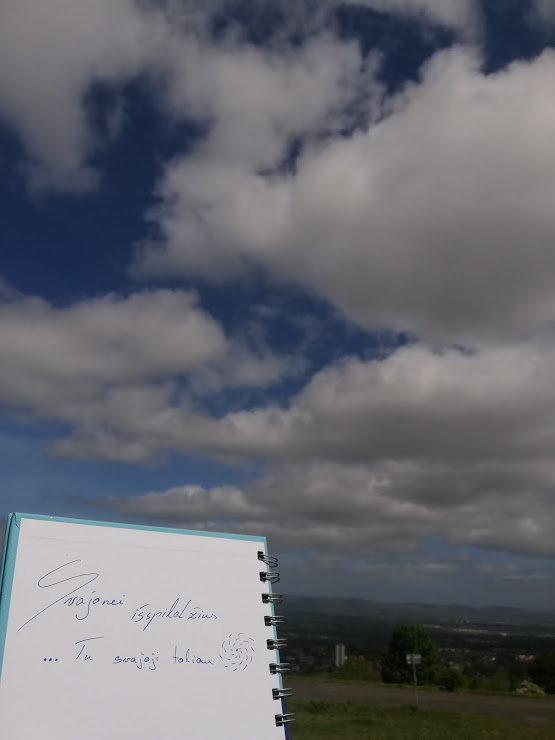 Svajonei išspildžius
... Tu svajoji toliau